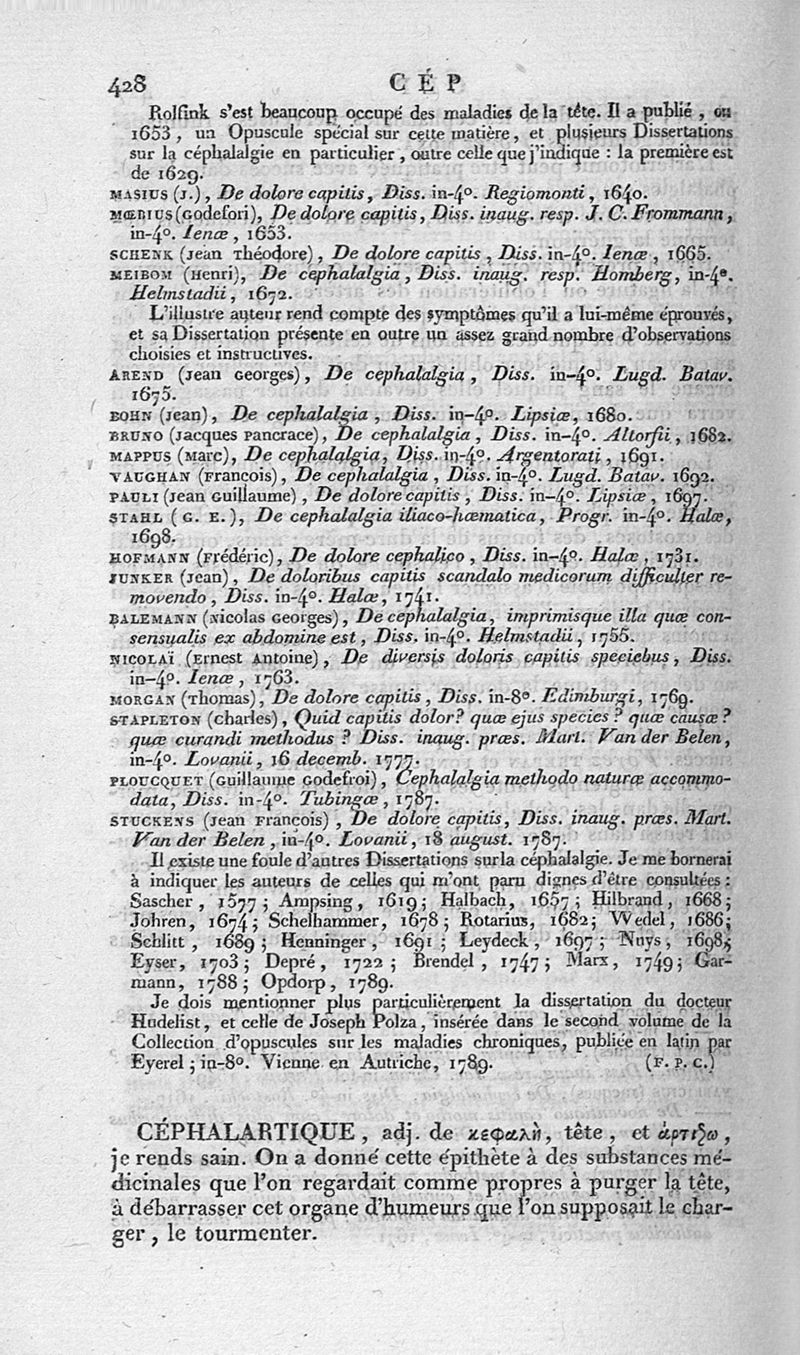 428
CÉP
Rolfink s'est beaucoup occupé des maladies de la tête. Il a publié, en
1653, un Opuscule spécial sur cette matière, et plusieurs Dissertations
sur la céphalalgie en particulier, outre celle que j'indique : la première est
de 1629.
MASIUS (J.), De dolore capitis, Diss. in-4°. Regiomonti, 1640.
MŒBIUS (Godefori), De dolore capitis, Diss. inaug. resp. J. C. Frommann,
in-4°. Ienæ, 1653.
SCHENK (Jean Théodore), De dolore capitis, Diss. in-4°. Ienæ, 1665.
MEIBOM (Henri), De cephalalgia, Diss. inaug. resp. Homberg, in-4°.
Helmstadii, 1672.
L'illustre auteur rend compte des symptômes qu'il a lui-même éprouvés,
et sa Dissertation présente en outre un assez grand nombre d'observations
choisies et instructives.
AREND (Jean Georges), De cephalalgia, Diss. in-4°. Lugd. Batav.
1675.
BOHN (Jean), De cephalalgia, Diss. in-4°. Lipsiæ, 1680.
BRUNO (Jacques Pancrace), De cephalalgia, Diss. in-4°. Altorfii, 1682.
MAPPUS (Marc), De cephalalgia, Diss. in-4°. Argentorati, 1691.
VAUGHAN (François), De cephalalgia, Diss. in-4°. Lugd. Batav. 1692.
PAULI (Jean Guillaume), De dolore capitis, Diss. in-4°. Lipsiæ, 1697.
STAHL (G. E.), De cephalalgia iliaco-hæmatica, Progr. in-4°. Halæ,
1698.
HOFMANN (Frédéric), De dolore cephalico, Diss. in-4°. Halæ, 1731.
JUNKER (Jean), De doloribus capitis scandalo medicorum difficulter re-
movendo, Diss. in-4°. Halæ, 1741.
BALEMANN (Nicolas Georges), De cephalalgia, imprimisque illa quæ con-
sensualis ex abdomine est, Diss. in-4°. Helmstadii, 1755.
NICOLAÏ (Ernest Antoine), De diversis doloris capitis speciebus, Diss.
in-4°. Ienæ, 1763.
MORGAN (Thomas), De dolore capitis, Diss. in-8°. Edimburgi, 1769.
STAPLETON (Charles), Quid capitis dolor? quæ ejus species? quæ causæ?
quæ curandi methodus? Diss. inaug. præs. Mart. Van der Belen,
in-4°. Lovanii, 16 decemb. 1777.
PLOUCQUET (Guillaume Godefroi), Cephalalgia methodo naturæ accommo-
data, Diss. in-4°. Tubingæ, 1787.
STUCKENS (Jean François), De dolore capitis, Diss. inaug. præs. Mart.
Van der Belen, in-4°. Lovanii, 18 august. 1787.
Il existe une foule d'autres Dissertations sur la céphalalgie. Je me bornerai
à indiquer les auteurs de celles qui m'ont paru dignes d'être consultées :
Sascher, 1577; Ampsing, 1619; Halbach, 1657; Hilbrand, 1668;
Johren, 1674; Schelhammer, 1678; Rotarius, 1682; Wedel, 1686;
Schlitt, 1689; Henninger, 1691; Leydeck, 1697; Nuys, 1698;
Eyser, 1703; Depré, 1722; Brendel, 1747; Marx, 1749; Gar-
mann, 1788; Opdorp, 1789.
Je dois mentionner plus particulièrement la dissertation du docteur
Hudelist, et celle de Joseph Polza, insérée dans le second volume de la
Collection d'opuscules sur les maladies chroniques, publiée en latin par
Eyerel; in-8°. Vienne en Autriche, 1789. (F. P. C.)
CÉPHALARTIQUE, adj. de κεφαλὴ, tête, et ἀρτιζω,
je rends sain. On a donné cette épithète à des substances mé-
dicinales que l'on regardait comme propres à purger la tête,
à débarrasser cet organe d'humeurs que l'on supposait le char-
ger, le tourmenter.